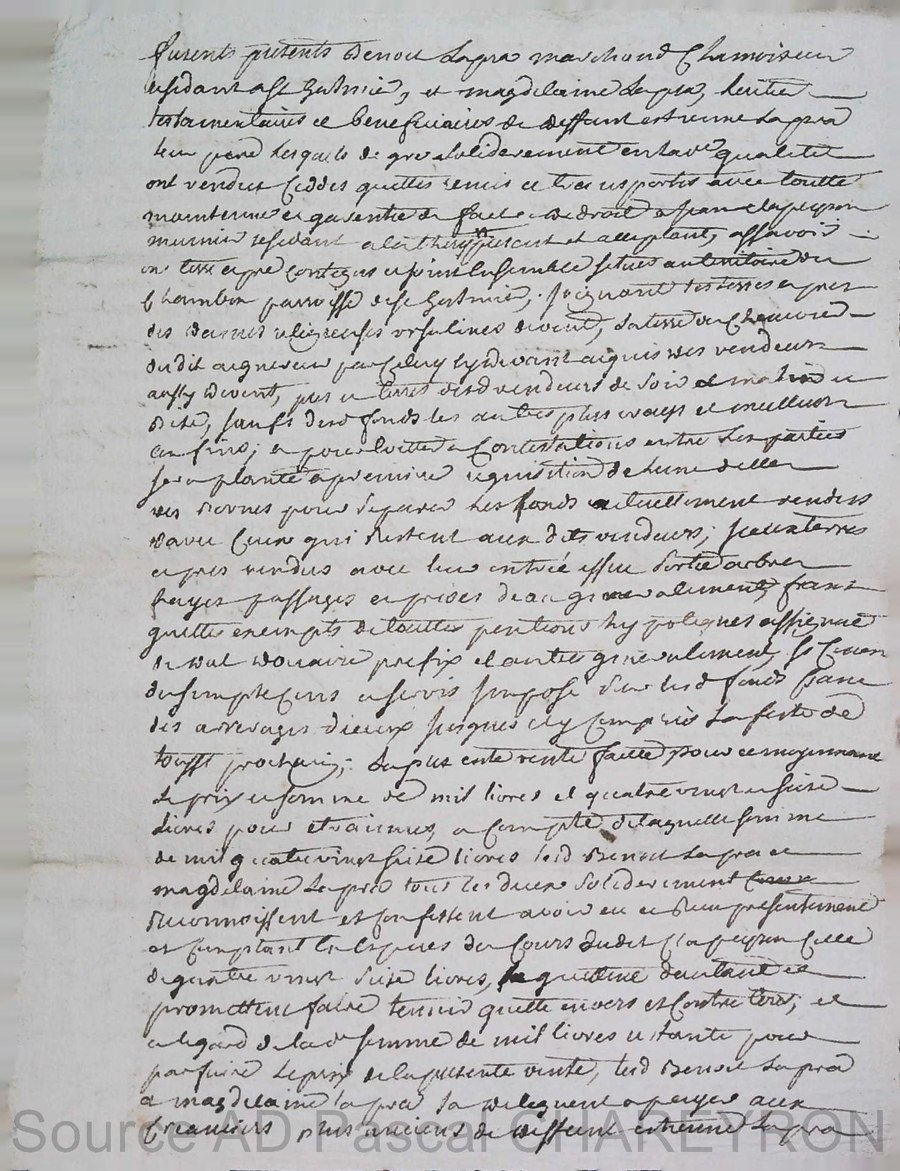 furents presents Benoit Lapra marchand Chamoiseur
residant a St Galmier, et magdelaine Lapra, heritier
testamentaires et beneficiaires de deffunt estienne Lapra
leur pere lesquels de gre solidairement en la de qualitté
ont vendus ceddes quittes remis et transportés avec toutte
maintenue et garentie de fait et de droit a Jean Clapeyron
munier residant a la thery present et acceptant, assavoir
un terre et pré contigus et joint Ensemble situés au territoire du
Chambon parroisse de St Galmier, joignant les terres et pres
des dames religieuses ursulines de vent, la terre de
dudit acquereur par celuy cy devant acquis des vendeurs
aussy de vent, pres et terres desd vendeurs de soir et matin et
bize, saufs desd fonds les autres plus vrays et meilleurs
confins; et pour eviter a Contestations entre les parties
sera planté a premiere requisition de l'une d'elles
des bornes pour separer les fonds actuellement vendus
d'avec Ceux qui restent aux dits vendeurs; iceux terres
et pres vendus avec leur entrée issue sortie arbres
hayes passages et prises d'eau generalement, francs
quittes exempts de touttes pentions hypoteques
de dot douaire prefix et autres generalement, si ce n'est
du simple Cens et servis imposé sur lesd fonds franc
des arrerages d'iceux jusques icy compris la feste de
tousst prochain; la presente vente faitte pour et moyennant
le prix et somme de mil livres et quatre vingt et seize
livres pour etraines, a Compte de laquelle somme
de mil quatre vingt seize livres lesd Benoit Lapra et
magdelaine Lapra tous les deux solidairement
reconnoissent et confessent avoir eu et reçu presentement
et comptant en Especes du Cours dudit Clapeyron Celle
de quatre vingt seize livres, l'en quittent d'autant et
promettent faire tenir quitte envers et contre tous; et
a legard de la de somme de mil livres restante pour
parfaire le prix de la presente vente, lesd Benoit Lapra
et magdelaine lapra la deleguent a payer aux
Creanciers plus anciens de deffunt estienne Lapra
Source AD Pascal CHAREYRON